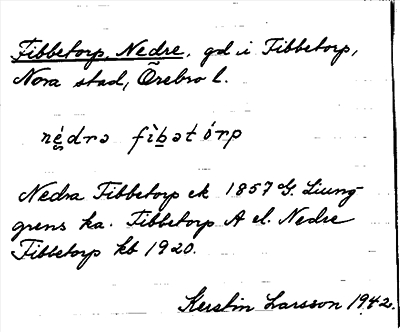 Fibbetorp, Nedre, gd i Fibbetorp,
Nora stad, Örebro l.
nèdrə fìbətórp
Nedra Fibbetorp ek 1857 G. Ljung-
grens ka. Fibbetorp A el. Nedre
Fibbetorp kb 1920.
Kerstin Larsson 1942.